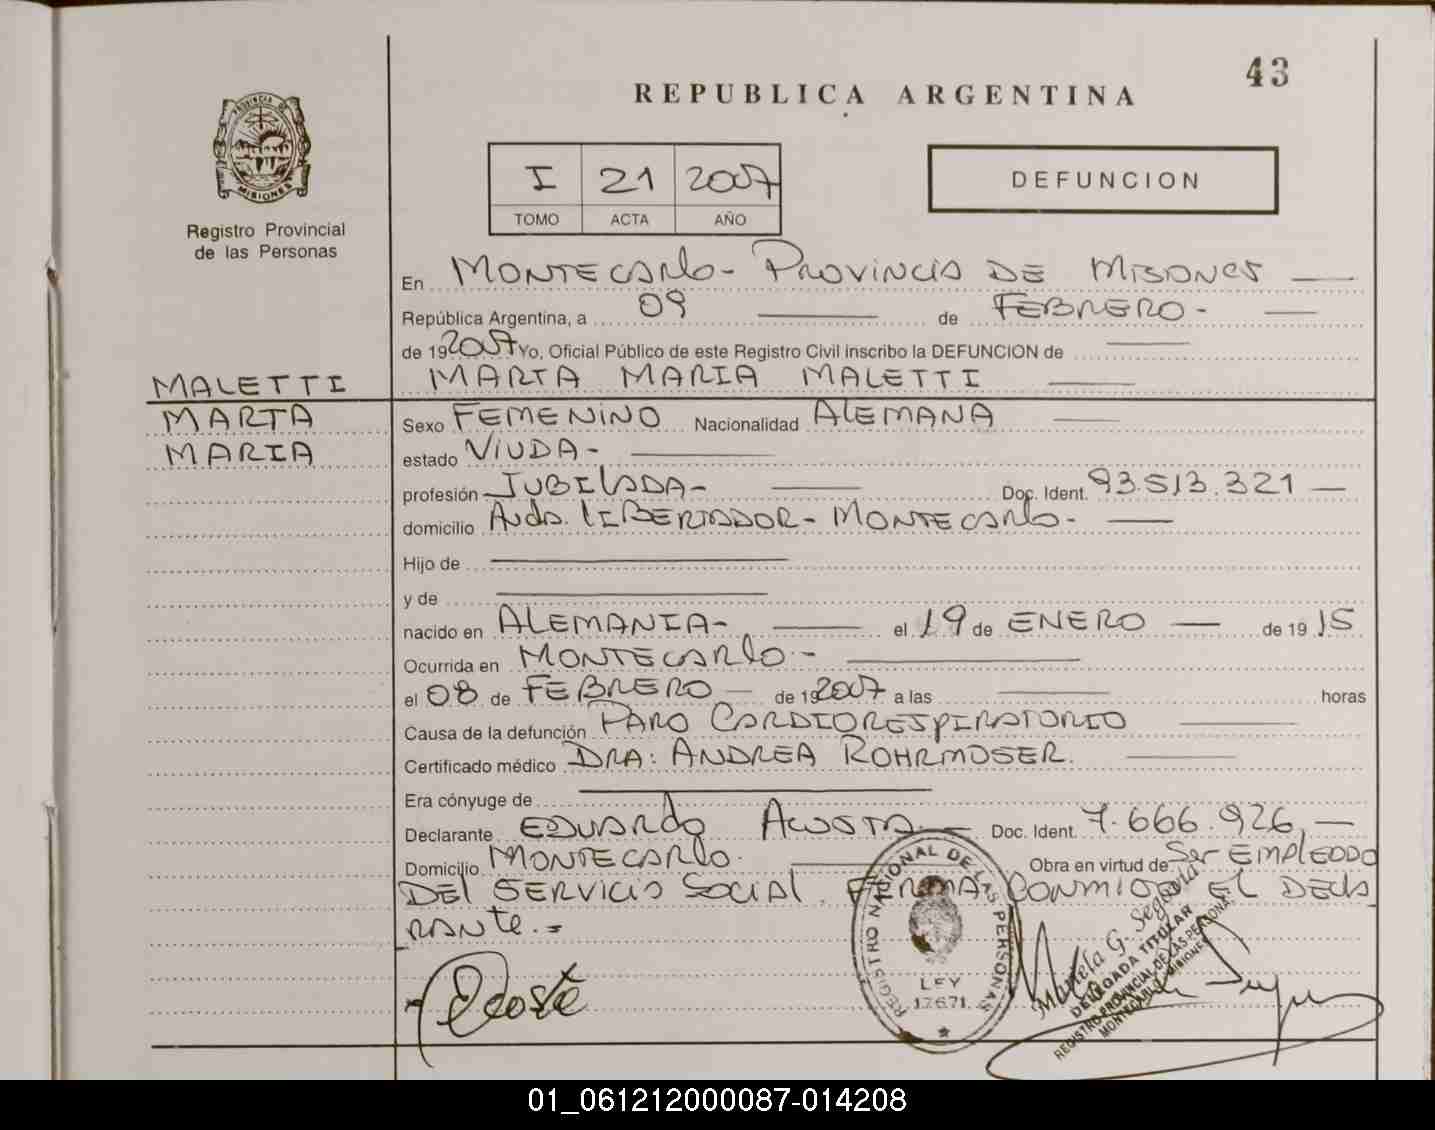 43
REPUBLICA ARGENTINA
PROVINCIA DE
MISIONES
Registro Provincial
de las Personas
I 21 2007
TOMO ACTA AÑO
DEFUNCION
En MONTECARLO - PROVINCIA DE MISIONES
República Argentina, a 09 de FEBRERO -
de 19 2007 Yo, Oficial Público de este Registro Civil inscribo la DEFUNCION de
MARTA MARIA MALETTI
MALETTI
MARTA
MARIA
Sexo FEMENINO Nacionalidad ALEMANA
estado VIUDA -
profesión JUBILADA - Doc. Ident. 93.513.321 —
domicilio Avda. LIBERTADOR - MONTECARLO -
Hijo de
y de
nacido en ALEMANIA - el 19 de ENERO — de 19 15
Ocurrida en MONTECARLO. -
el 08 de FEBRERO — de 19 2007 a las horas
Causa de la defunción PARO CARDIORESPIRATORIO
Certificado médico DRA: ANDREA ROHRMOSER.
Era cónyuge de
Declarante EDUARDO ACOSTA — Doc. Ident. 7.666.926, —
Domicilio MONTECARLO. Obra en virtud de Ser EMPLEADO
DEL SERVICIO SOCIAL. FIRMA CONMIGO EL DECLA
RANTE. =
Acosta
REGISTRO NACIONAL DE LAS PERSONAS
LEY
17.671
Mariela G. Segovia
DELEGADA TITULAR
REGISTRO PROVINCIAL DE LAS PERSONAS
MONTECARLO - MISIONES
01_061212000087-014208